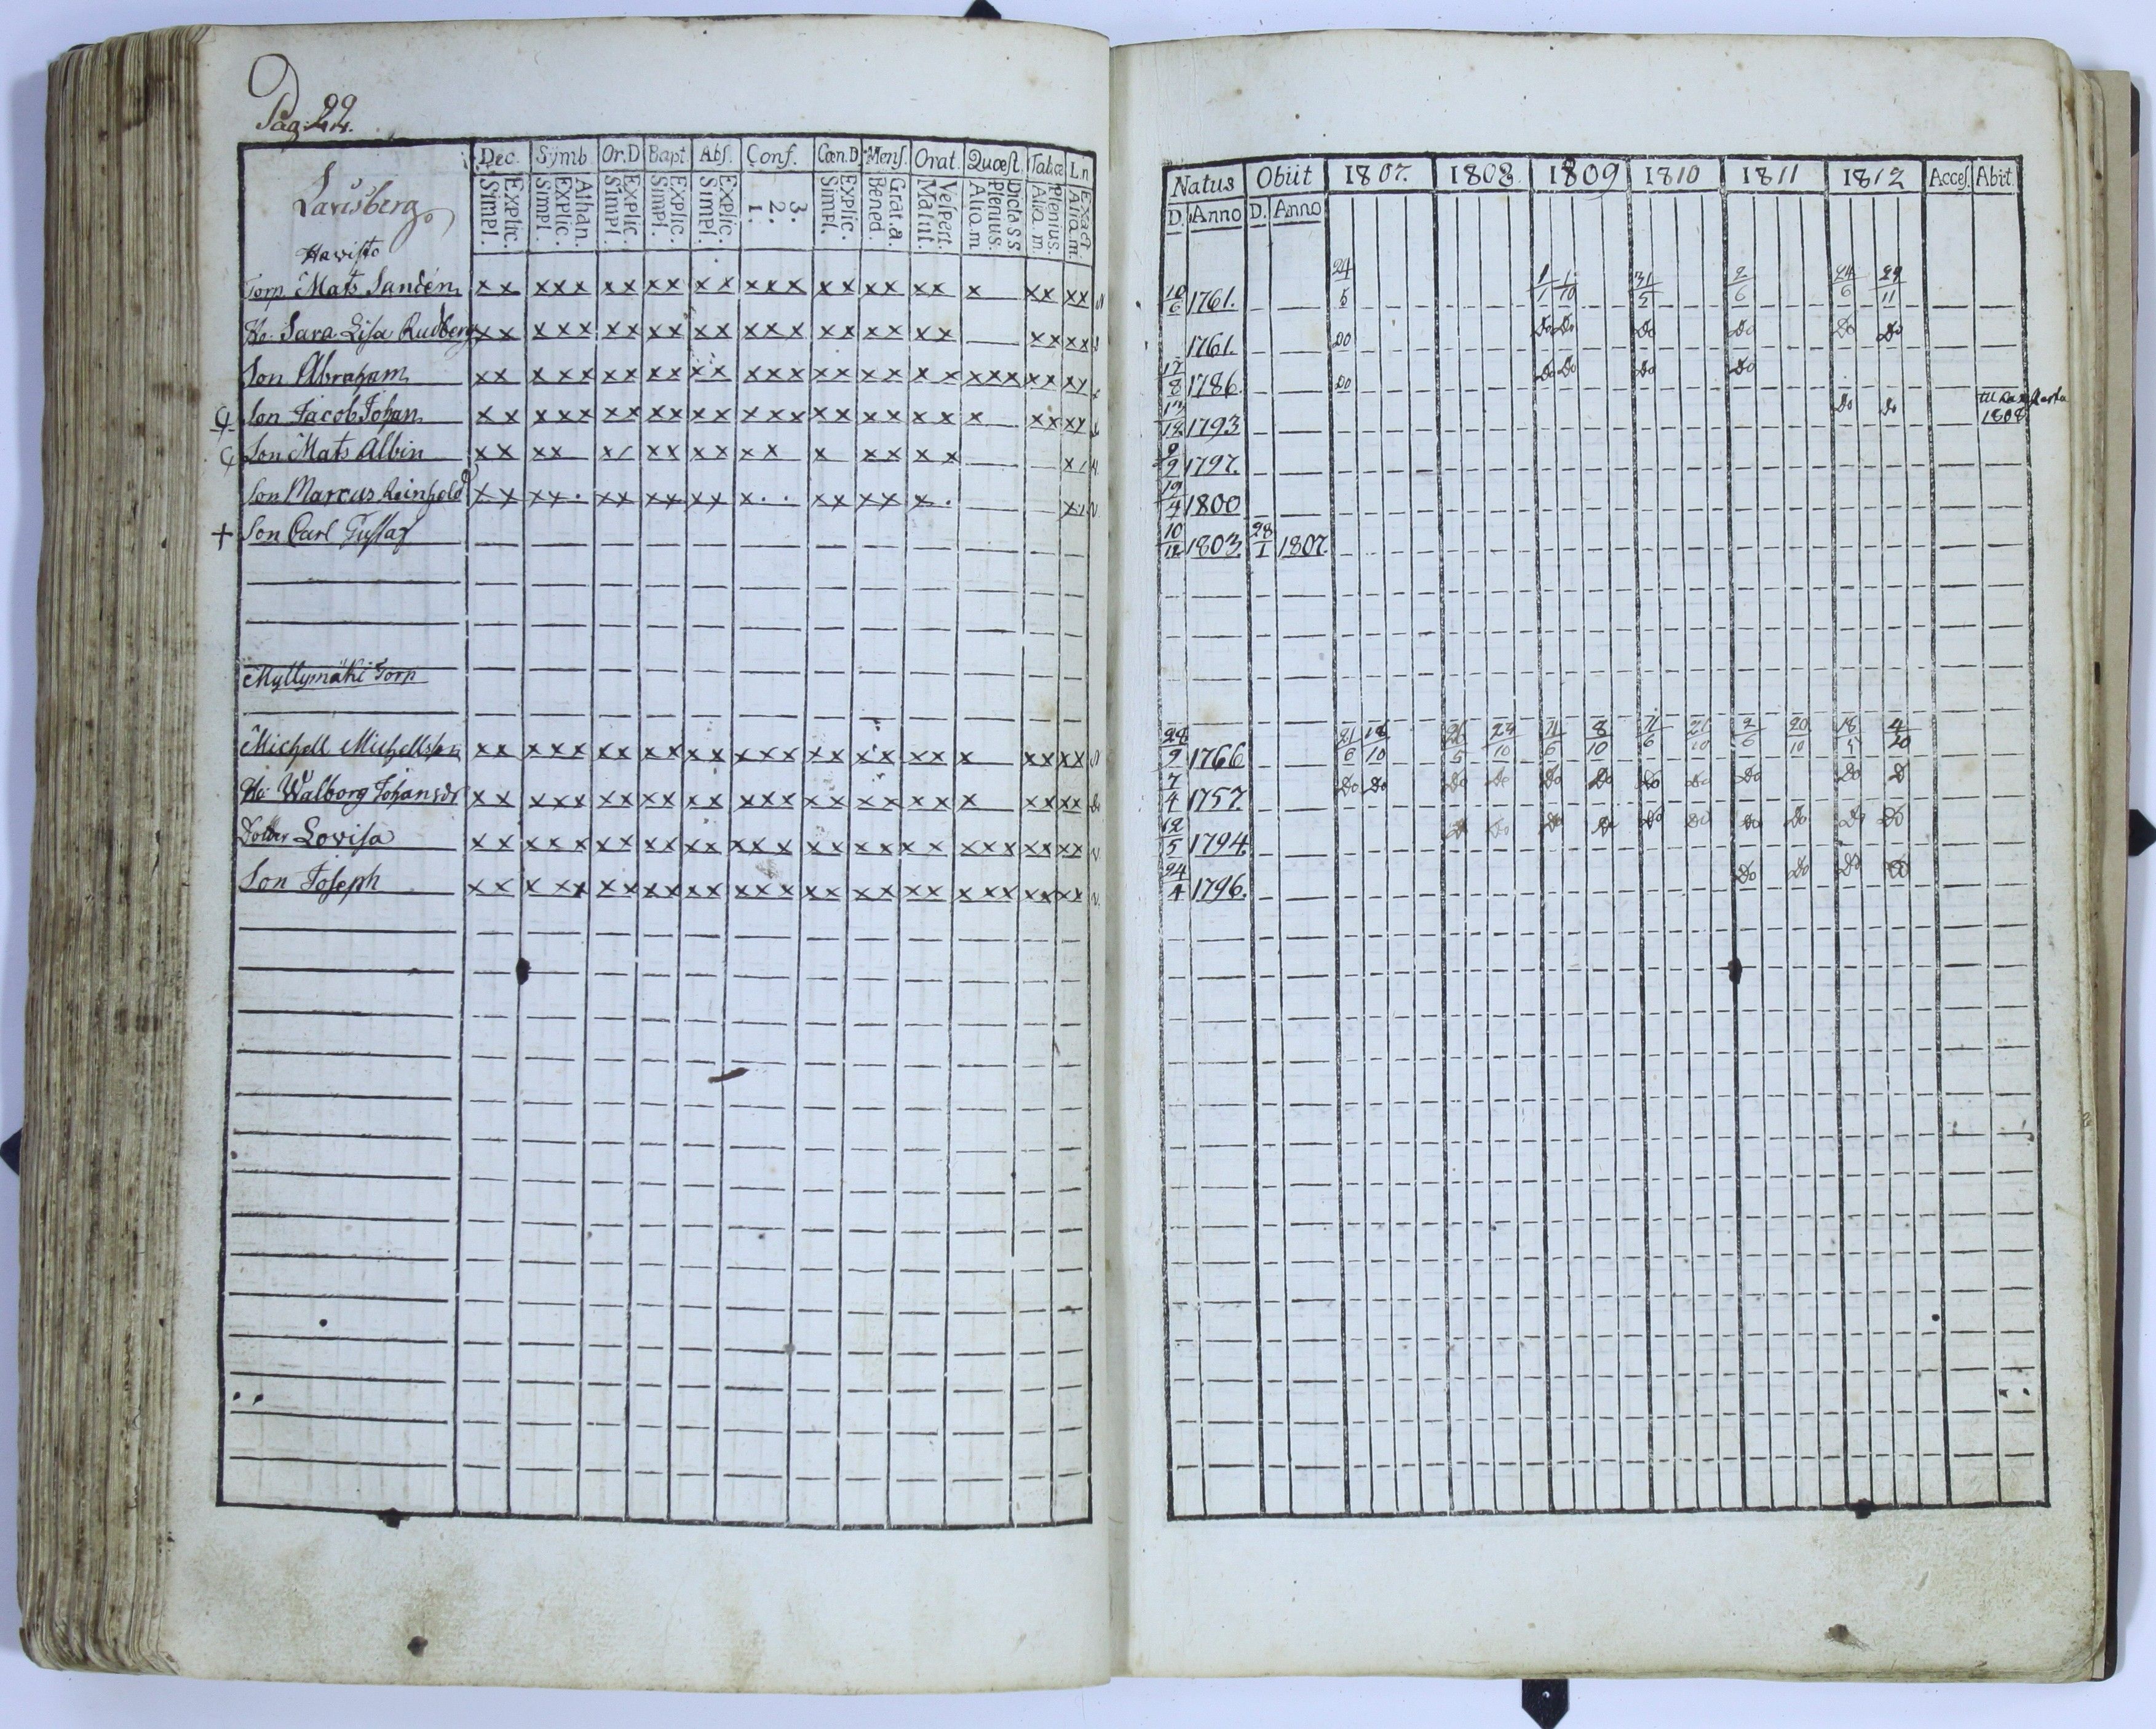 Pag: 22.
Dec. Symb. Or.D Bapt. Abs. Conf. Cœn.D. Mens. Orat. Quæst. Tabæ L.n
Simpl. Explic. Simpl. Explic. Athan. Simpl. Explic. Simpl. Explic. Simpl. Explic. 1. 2. 3. Simpl. Explic. Bened. Grat.a. Matut. Vespert. Aliq.m Plenius. Dicta S S Aliq.m. Plenius. Aliq.m. Exact
Natus Obiit 1807. 1808. 1809 1810 1811 1812 Acces. Abit.
D. Anno D. Anno
Larisberg
Havisto
Torp. Mats Sandén x x x x x x x x x x x x x x x x x x x x x x x x x 10/6 1761. 24/5 1/1 1/10 31/5 2/6 24/6 29/11
Ho. Sara Lisa Rudberg x x x x x x x x x x x x x x x x x x x x x x x x 1761. Do Do Do Do Do Do Do
Son Abraham x x x x x x x x x x x x x x x x x x x x x x x x x x x 17/8 1786. Do Do Do Do Do
Son Jacob Johan x x x x x x x x x x x x x x x x x x x x x x x x x 1793 Do Do 1808
Son Mats Albin x x x x x x x x x x x x x x x x x x 9/9 1797.
Son Marcus Reinhold x x x x x x x x x x x x x x x x x 19/4 1800
+ Son Carl Gustaf 10/12 1803. 28/1 1807.
Myllymäki Torp
Michell Michellsson x x x x x x x x x x x x x x x x x x x x x x x x x 28/9 1766 21/6 18/10 26/5 29/10 11/6 8/10 11/6 21/10 2/6 20/10 18/5 4/10
Ho. Walborg Johansdr x x x x x x x x x x x x x x x x x x x x x x x x x 7/4 1757. Do Do Do Do Do Do Do Do Do Do Do
Dotter Lovisa x x x x x x x x x x x x x x x x x x x x x x x x x x x 12/5 1794 Do Do Do Do Do Do Do Do Do Do
Son Joseph x x x x x x x x x x x x x x x x x x x x x x x x x x x 24/4 1796. Do Do Do Do